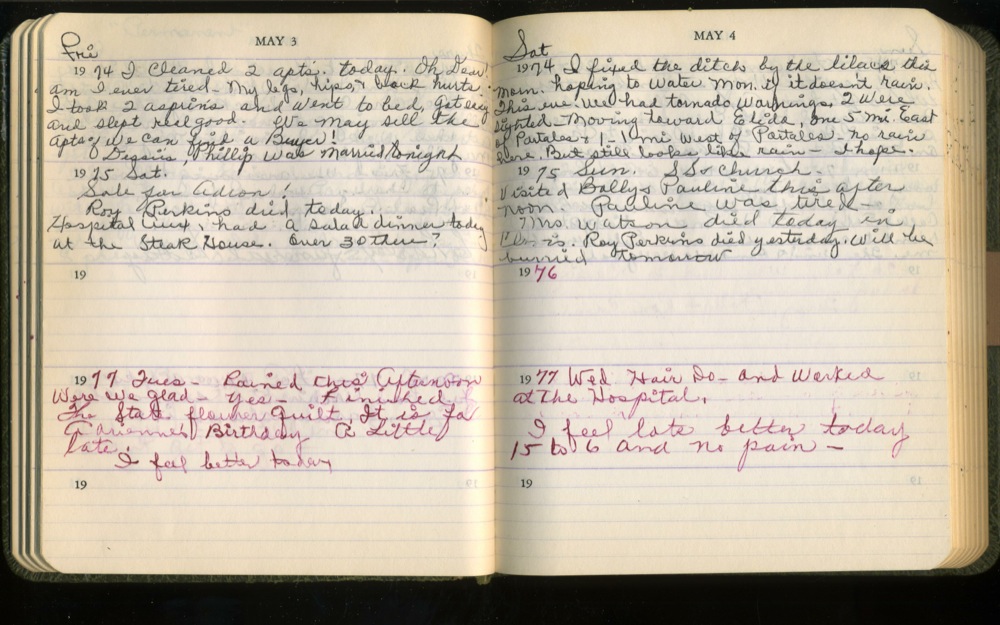 MAY 3
Fri
1974 I cleaned 2 apts. today. Oh Dear!
am I ever tired - My legs, hips, & back hurts.
I took 2 aspirins and went to bed, get easy
and slept real good. We may sell the
apts if we can find a Buyer!
Phillip was Married tonight
1975 Sat.
Sale for
Roy Perkins died today.
Hospital Aux. had a Salad dinner today
at the Steak House. Over 30 there?
19
1977 Tues - Rained this Afternoon
Were we glad - Yes - Finished
The State flower Quilt. It is for
Adriennes Birthday A Little
late.
I feel better today
19
MAY 4
Sat
1974 I fixed the ditch by the lilacs this
morn. hoping to Water Mon. if it doesnt rain.
This eve. we had tornado Warnings, 2 Were
Sighted - Moving toward Elida, one 5 mi. East
of Portales & 1 - 1 mi West of Portales. no rain
here. But still looks like rain - I hope.
1975 Sun. SS & Church -
Visited Bolly & Pauline this after
noon. Pauline was tired -
Mrs Watson died today in
Clovis. Roy Perkins died yesterday. Will be
burried tomorrow
1976
1977 Wed. Hair Do - and Worked
at The Hospital.
I feel lots better today
15 to 6 and no pain -
19